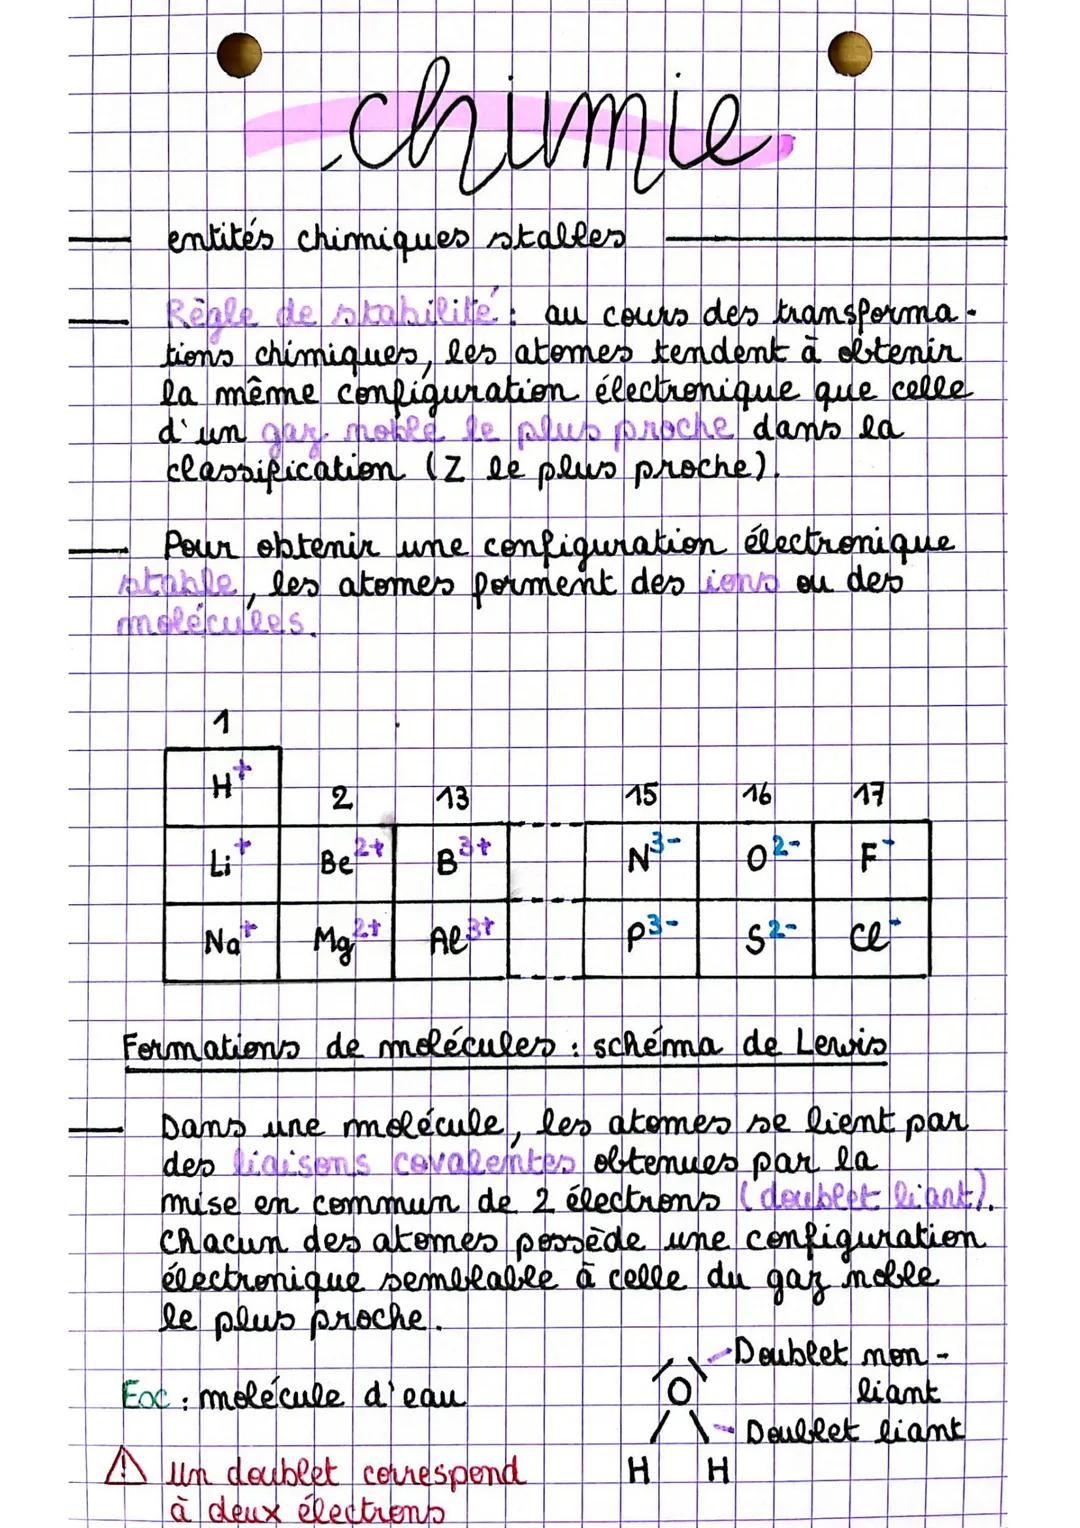 chimie
entités chimiques stables
Règle de stabilité : au cours des transforma-
tions chimiques, les atomes tendent à obtenir
la même configuration électronique que celle
d'un gaz noble le plus proche dans la
classification (Z le plus proche).
Pour obtenir une configuration électronique
stable, les atomes forment des ions ou des
molécules.
1
H⁺ 2 13 15 16 17
Li⁺ Be²⁺ B³⁺ N³⁻ O²⁻ F⁻
Na⁺ Mg²⁺ Al³⁺ P³⁻ S²⁻ Cl⁻
Formations de molécules : schéma de Lewis
Dans une molécule, les atomes se lient par
des liaisons covalentes obtenues par la
mise en commun de 2 électrons (doublet liant).
Chacun des atomes possède une configuration
électronique semblable à celle du gaz noble
le plus proche.
Doublet non-
liant
Ex : molécule d'eau
O
Doublet liant
H H
⚠ un doublet correspond
à deux électrons